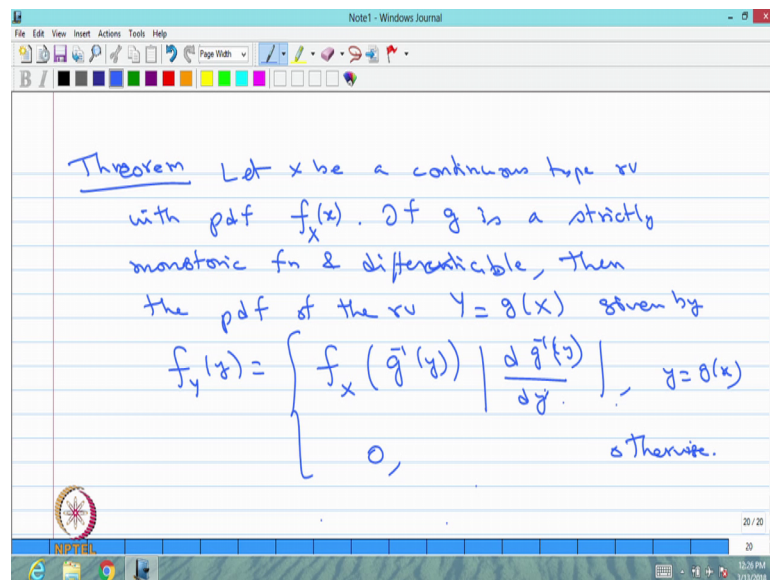 Note1 - Windows Journal
File Edit View Insert Actions Tools Help
Page Width
B I
Threorem Let x be a continuous type rv
with pdf f_X(x). If g is a strictly
monotonic fn & differentiable, then
the pdf of the rv Y = g(X) given by
f_Y(y) = { f_X (g^{-1}(y)) | d g^{-1}(y) / dy |, y = g(x)
0, otherwise.
NPTEL
20 / 20
20
12:26 PM
1/13/2013